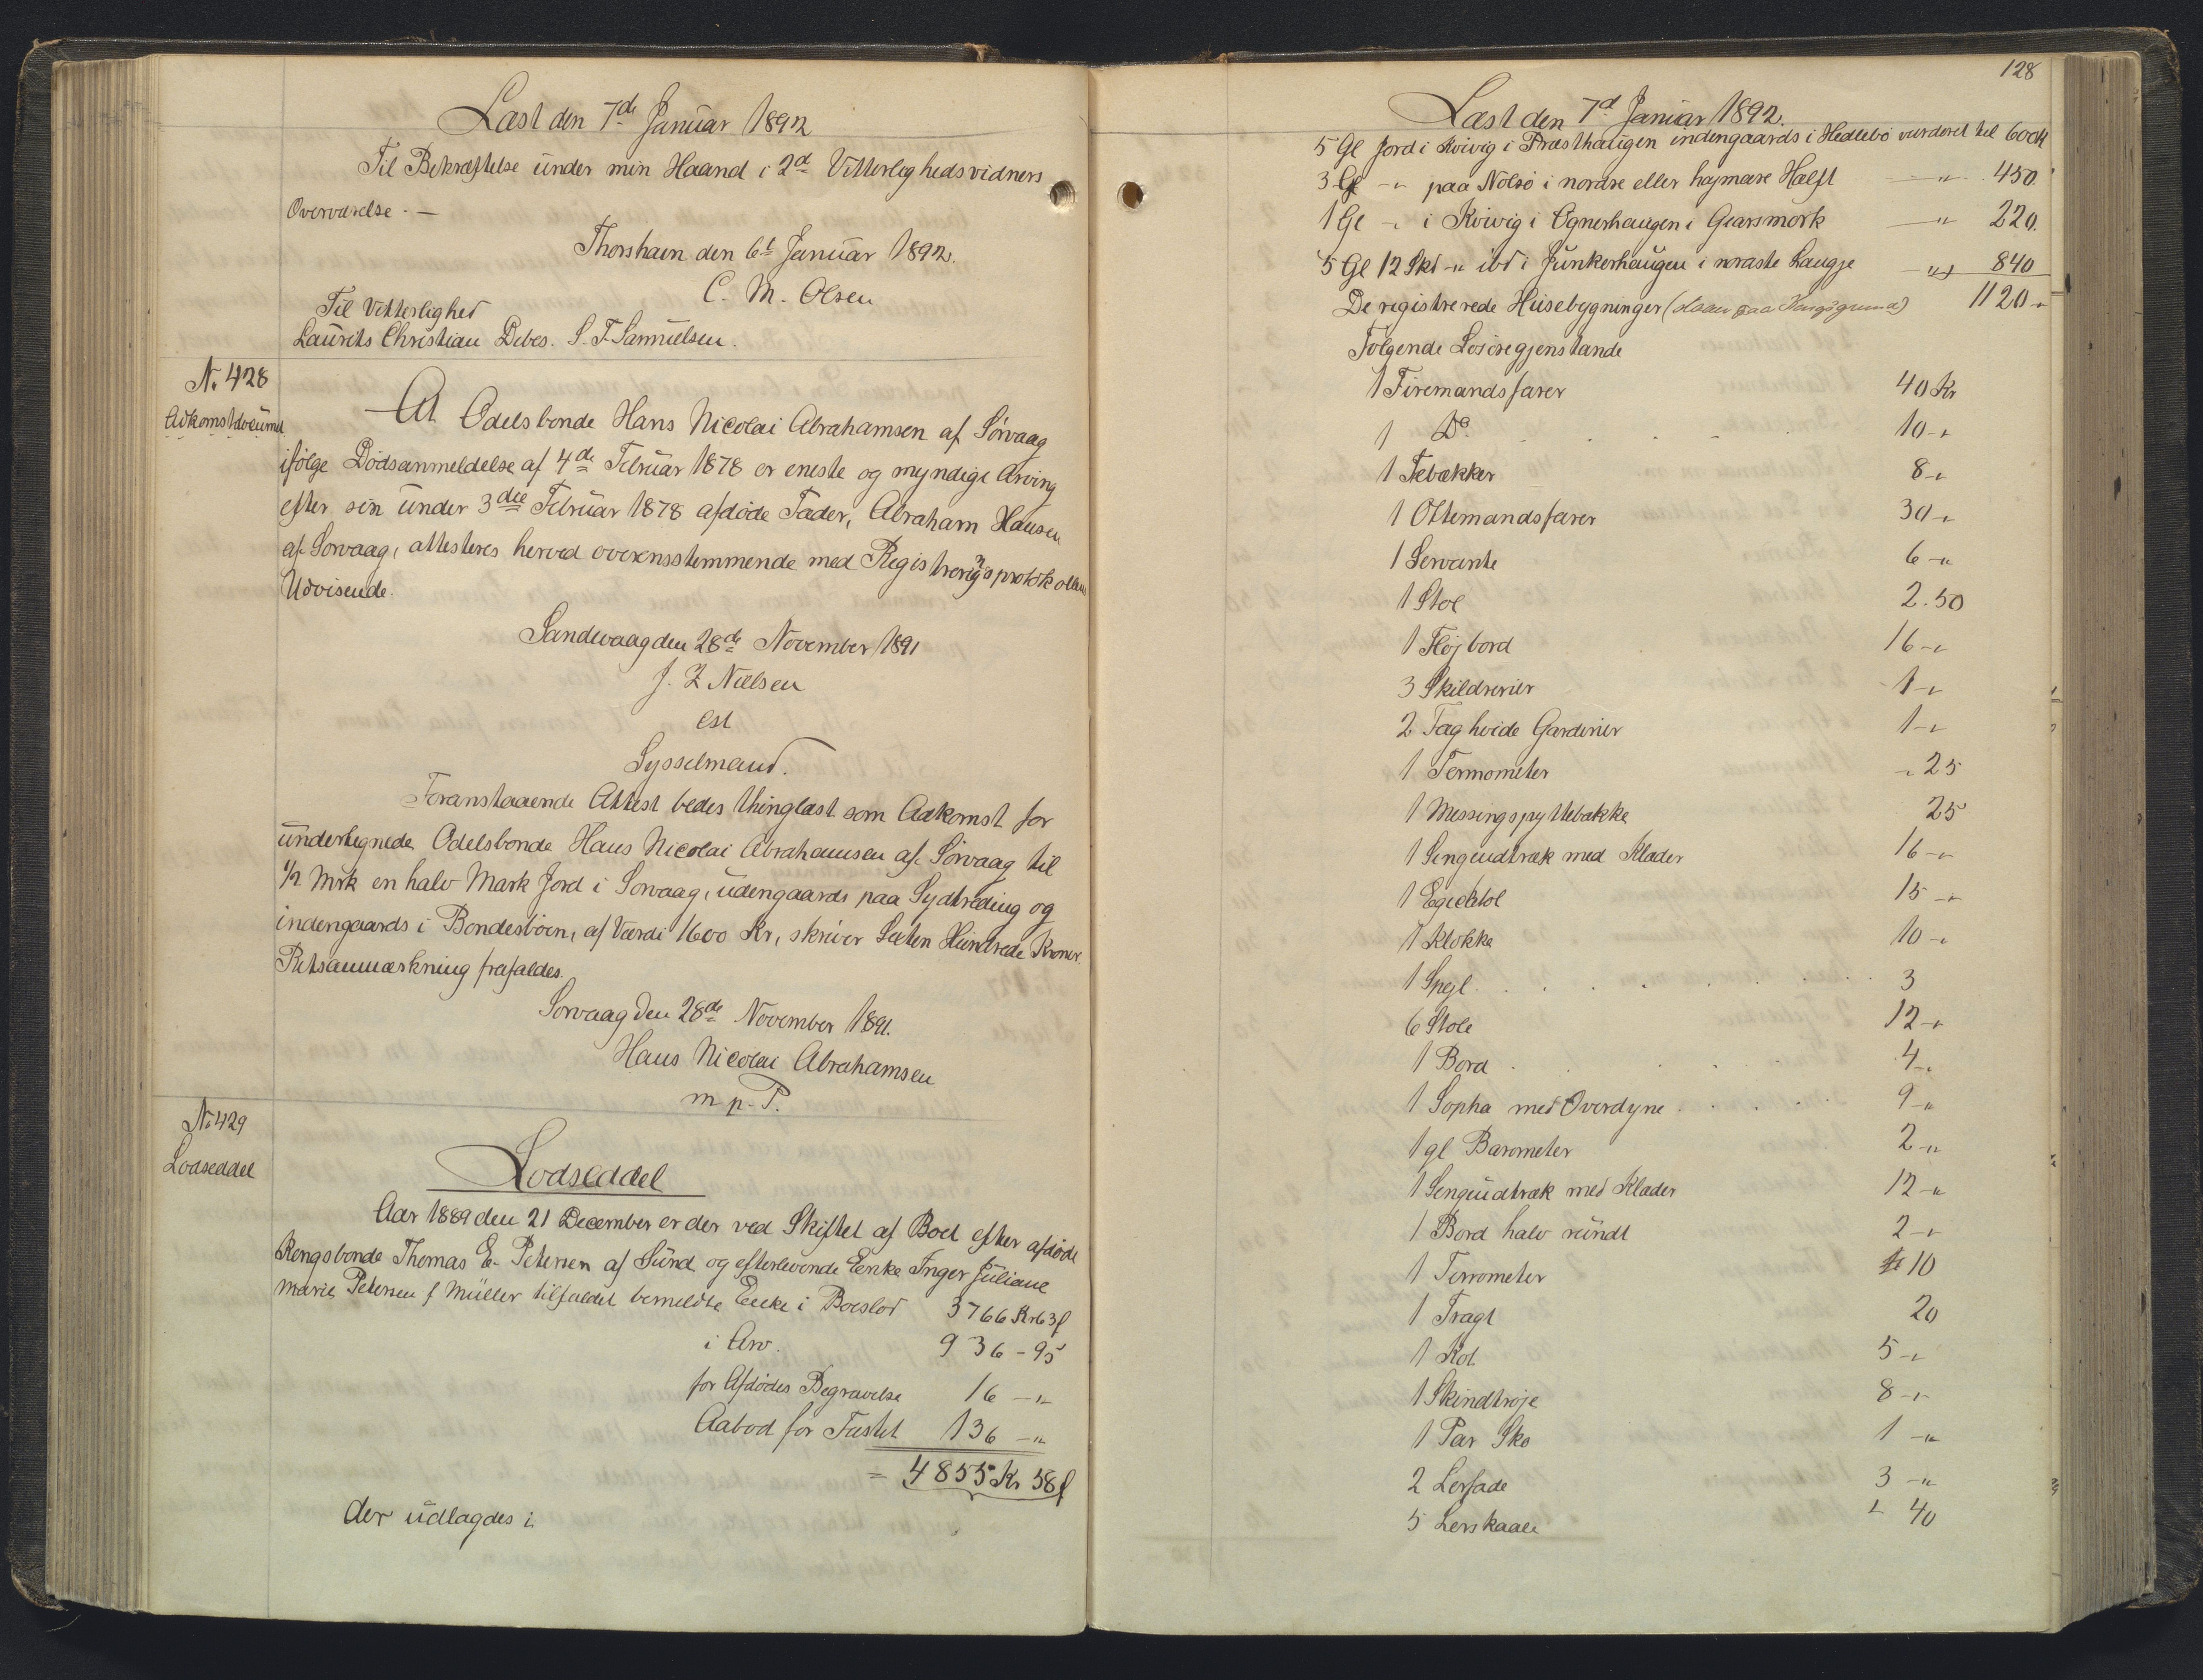 Læst den 7de Januar 1892
Til Bekræftelse under min Haand i 2d Vitterlighedsvidners
Overværelse. —
Thorshavn den 6t Januar 1892.
C. M. Olsen
Til Vitterlighed
Laurits Christian Debes. S. F. Samuelsen.
No 428
Adkomstdocument
At Odelsbonde Hans Nicolai Abrahamsen af Sörvaag
ifølge Dødsanmeldelse af 4de Februar 1878 er eneste og myndige Arving
efter sin under 3die Februar 1878 afdøde Fader, Abraham Hansen
af Sorvaag, attesteres herved overensstemmende med Registreringsprotokollens
Udvisende.
Sandevaag den 28de November 1891
J. Z Nielsen
cst
Sysselmand.
Foranstaaende Attest bedes thinglæst som Adkomst for
undertegnede Odelsbonde Hans Nicolai Abrahamsen af Sörvaag til
1/2 Mrk en halv Mark Jord i Sorvaag, udengaards paa Sydtreding og
indengaards i Bondesböen, af Værdi 1600 Kr, skriver Sexten Hundrede Kroner.
Retsanmærkning frafaldes.
Sorvaag den 28de November 1891.
Hans Nicolai Abrahamsen
m. p. P.
No 429
Lodseddel
Lodseddel
Aar 1889 den 21 December er der ved Skiftet af Boet efter afdøde
Kongsbonde Thomas E. Petersen af Sund og efterlevende Enke Inger Juliane
Marie Petersen f Müller tilfaldet bemeldte Enke i Boeslod 3766 Kr 63 f
i Arv. 936 - 95
for Afdødes Begravelse 16 - "
Aabod for Fæstet 136 - "
= 4855 Kr 58 f
der udlagdes i
128
Læst den 7d Januar 1892.
5 Gl Jord i Kvivig i Præsthaugen indengaards i Hedlebö vurderet til 600 Kr
3 Gl - " paa Nolsö i nordre eller højmære Hælft — " — 450.
1 Gl - " i Kvivig i Ognerhaugen i Gearsmørk — " — 220.
5 Gl 12 Skd - " ibd i Junkerhaugen i noraste Laugje — " — 840
De registrerede Husebygninger (staaer paa Kongsgrund) 1120 - "
Følgende Løsøregjenstande
1 Firemandsfarer 40 Kr
1 Do. 10 - "
1 Tebækker 8 - "
1 Ottemandsfarer 30 - "
1 Servante 6 - "
1 Stol 2.50
1 Fløjbord 16 - "
3 Skilderier 1 - "
2 Fag hvide Gardiner 1 - "
1 Termometer " 25
1 Messingspyttebakke 25
1 Sengeudtræk med Klæder 16 - "
1 Egestol 15 - "
1 Klokke 10 - "
1 Spejl 3
6 Stole 12 - "
1 Bord 4 - "
1 Sopha med Overdyne 9 - "
1 gl Barometer 2 - "
1 Sengeudtræk med Klæder 12 - "
1 Bord halv rundt 2 - "
1 Terrometer 10
1 Tragt 20
1 Kot 5 - "
1 Skindtrøje 8 - "
1 Par Sko 1 - "
2 Lerfade 3 - "
5 Lerskaale " 40